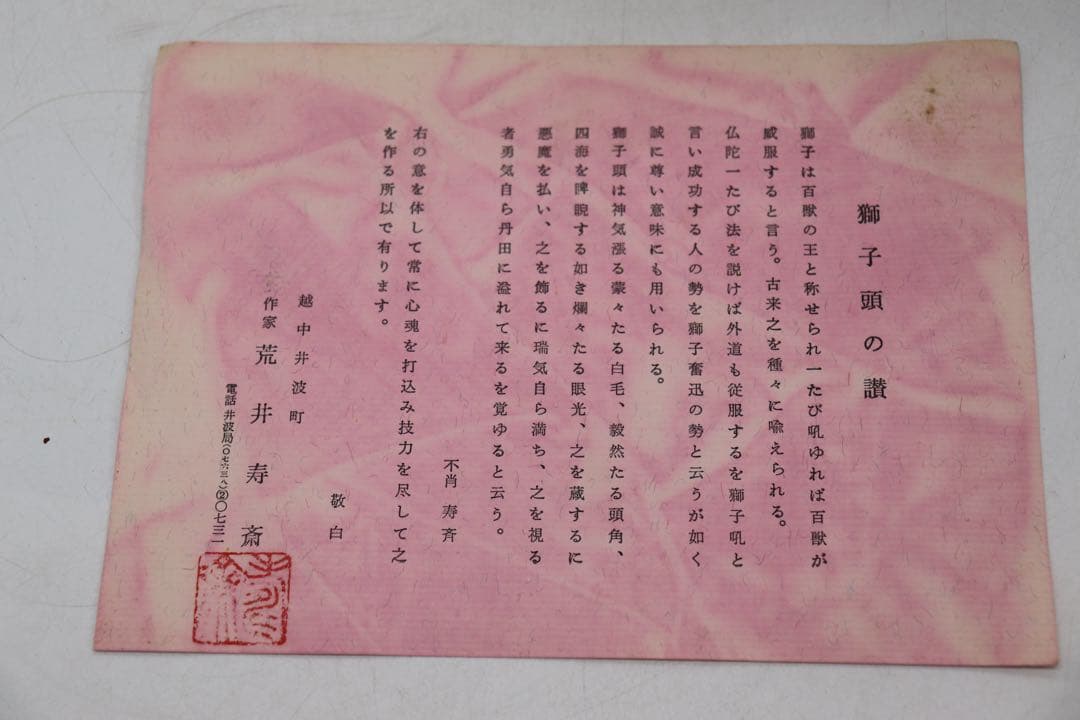 獅子頭の讃
獅子は百獣の王と称せられ一たび吼ゆれば百獣が
威服すると言う。古来之を種々に喩えられる。
仏陀一たび法を説けば外道も従服するを獅子吼と
言い成功する人の勢を獅子奮迅の勢と云うが如く
誠に尊い意味にも用いられる。
獅子頭は神気漲る蒙々たる白毛、毅然たる頭角、
四海を睥睨する如き爛々たる眼光、之を蔵するに
悪魔を払い、之を飾るに瑞気自ら満ち、之を視る
者勇気自ら丹田に溢れて来るを覚ゆると云う。
不肖 寿斉
右の意を体して常に心魂を打込み技力を尽して之
を作る所以で有ります。
敬白
越中井波町
作家 荒井寿斎
電話 井波局(〇七六三八)②〇七三二